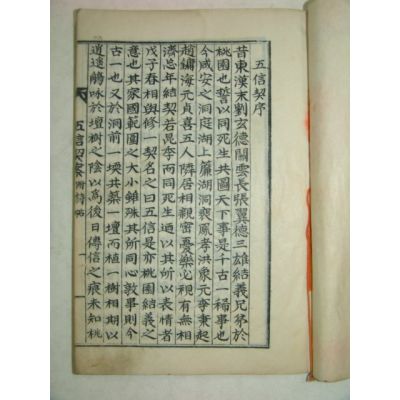 五信契序
昔東漢末劉玄德關雲長張翼德三雄結義兄弟於
桃園也誓以同死生共圖天下事是千古一稀事也
今咸安之洞庭湖上簾湖洞裵風孝洪象元李秉起
趙鏞海元貞喜五人隣居相親密憂樂必視有無相
濟忩年結契若昆季而同死生迺以其所以表情者
戊子春相與修一契名之曰五信是亦桃園結義之
意也其家國範圍之大小雖殊其所同心敦事則今
古一也又於洞前一堧共築一壇而植一樹相期以
逍遙觴咏於壇樹之陰以爲後日傳信之痕未知桃
五信契案
序
一